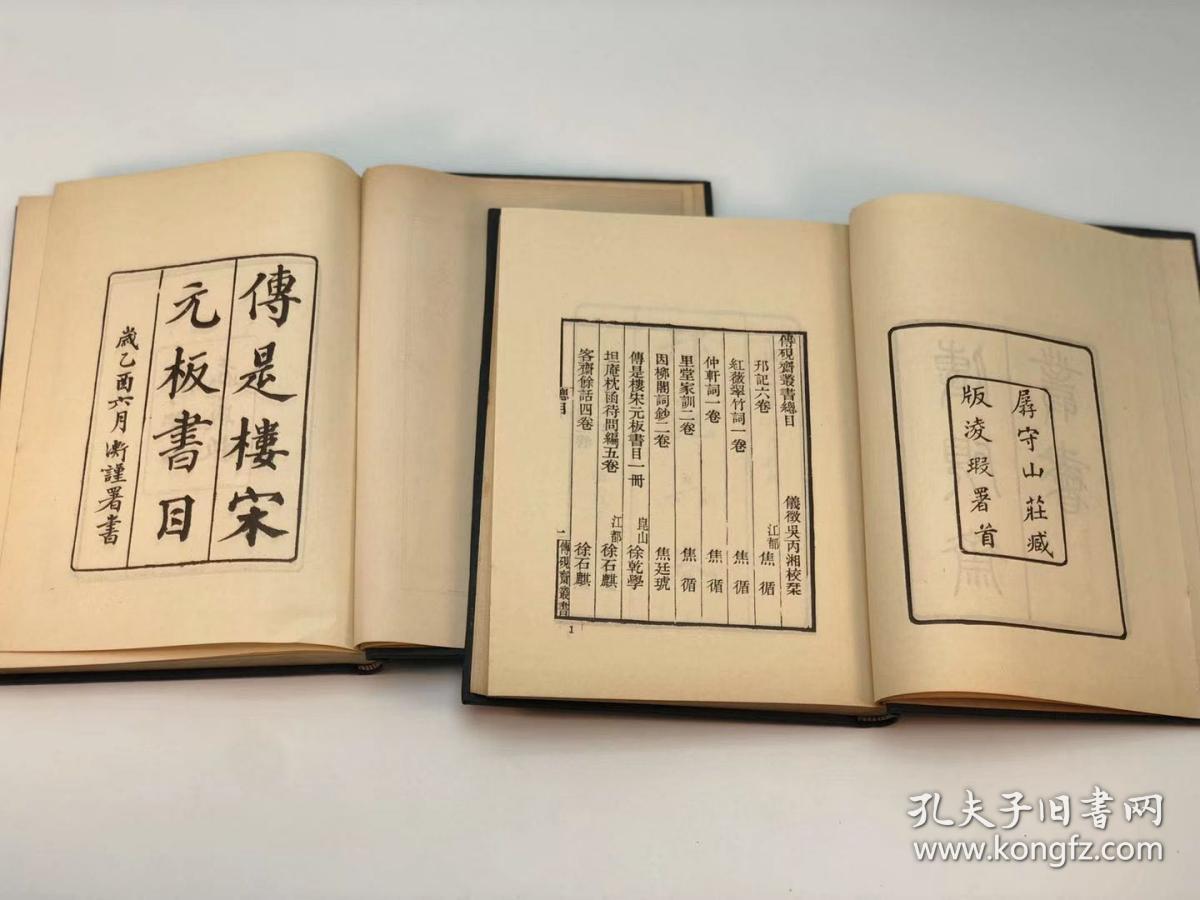 傳是樓宋
元板書目
歲乙酉六月瀞謹署書
傳硯齋叢書總目 儀徵吳丙湘校栞
邗記六卷 江都焦循
紅薇翠竹詞一卷 焦循
仲軒詞一卷 焦循
里堂家訓二卷 焦循
因柳閣詞鈔二卷 焦廷琥
傳是樓宋元板書目一冊 崑山徐乾學
坦庵枕函待問編五卷 江都徐石麒
客齋餘話四卷 徐石麒
總目 一 傳硯齋叢書
1
孱守山莊臧
版淩瑕署首
孔夫子旧书网
www.kongfz.com